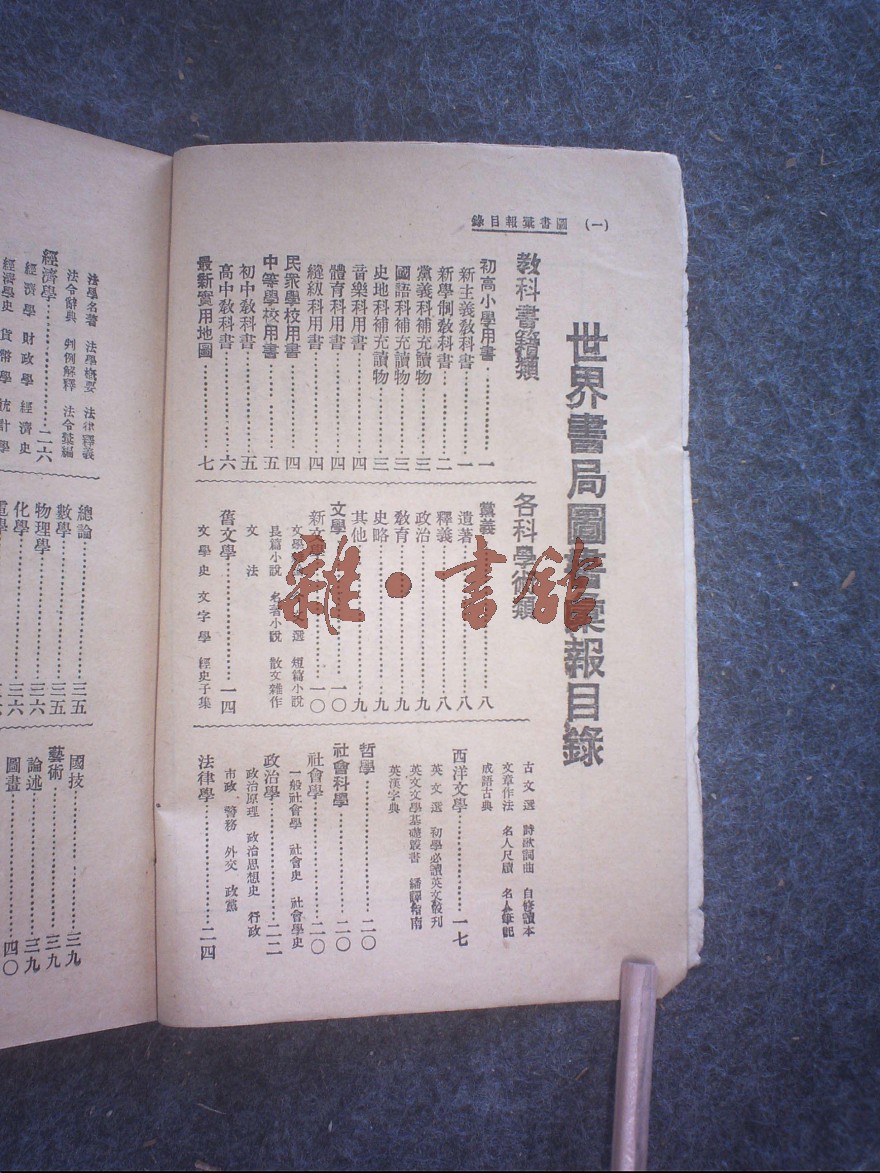 （一） 圖書彙報目錄
世界書局圖書彙報目錄
教科書籍類
初高小學用書………一
新主義教科書………一
新學制教科書………二
黨義科補充讀物………三
國語科補充讀物………三
史地科補充讀物………三
音樂科用書………四
體育科用書………四
縫紉科用書………四
民衆學校用書………四
中等學校用書………五
初中教科書………五
高中教科書………六
最新實用地圖………七
各科學術類
黨義………八
遺著………八
釋義………八
政治………九
教育………九
史略………九
其他………九
文學………一〇
新文學………一〇
選 短篇小說
長篇小說 名著小說 散文雜作
文法
舊文學………一四
文學史 文字學 經史子集
古文選 詩歌詞曲 自修讀本
文章作法 名人尺牘 名人筆記
成語古典
西洋文學………一七
英文選 初學必讀英文叢刊
英文文學基礎叢書 繙譯指南
英漢字典
哲學………二〇
社會科學………二〇
社會學………二〇
一般社會學 社會史 社會學史
政治學………二二
政治原理 政治思想史 行政
市政 警務 外交 政黨
法律學………二四
法學名著 法學概要 法律釋義
法令辭典 判例解釋 法令彙編
經濟學………二六
經濟學 財政學 經濟史
經濟學史 貨幣學 統計學
總論………三五
數學………三五
物理學………三六
化學………三六
國技………三九
藝術………三九
論述………三九
圖畫………四〇
雜·書館